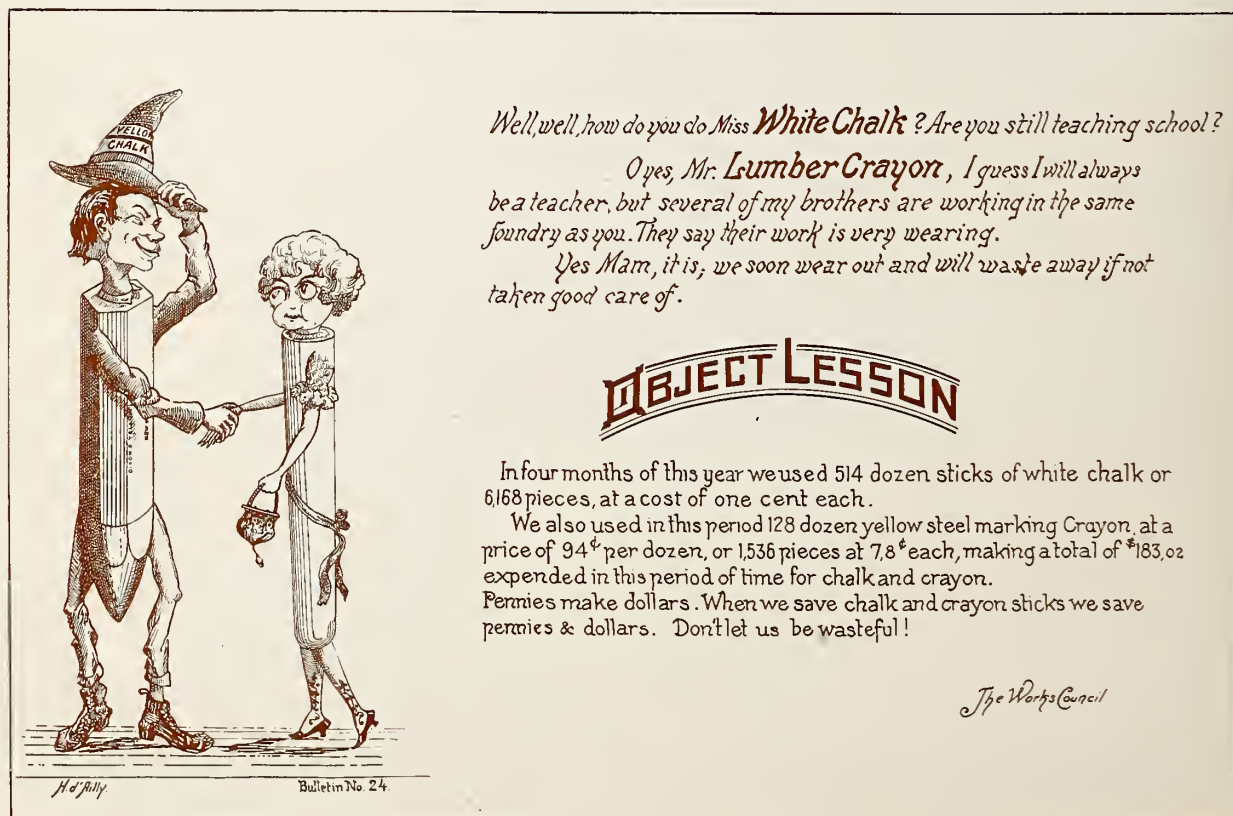 YELLOW
CHALK
Well, well, how do you do Miss White Chalk? Are you still teaching school?
O yes, Mr. Lumber Crayon, I guess I will always
be a teacher, but several of my brothers are working in the same
foundry as you. They say their work is very wearing.
Yes Mam, it is; we soon wear out and will waste away if not
taken good care of.
OBJECT LESSON
In four months of this year we used 514 dozen sticks of white chalk or
6,168 pieces, at a cost of one cent each.
We also used in this period 128 dozen yellow steel marking Crayon, at a
price of 94¢ per dozen, or 1,536 pieces at 7,8¢ each, making a total of $183,02
expended in this period of time for chalk and crayon.
Pennies make dollars. When we save chalk and crayon sticks we save
pennies & dollars. Don't let us be wasteful!
The Works Council
H. d'Ailly.
Bulletin No. 24.